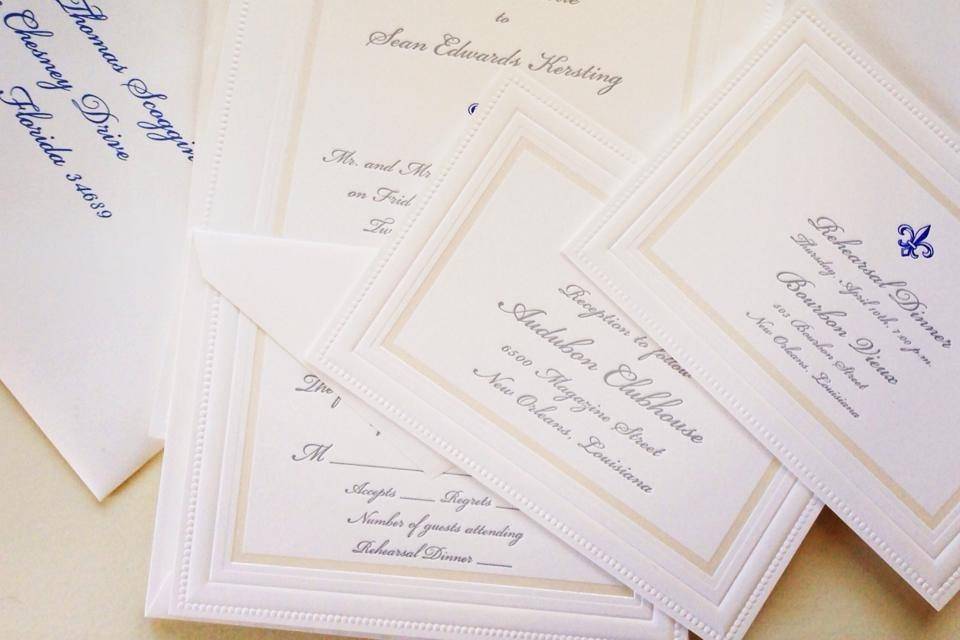 Thomas Scoggin
Chesney Drive
Florida 34689
to
Sean Edwards Kersting
Mr. and Mr
on Frid
Tw
M
Accepts ____ Regrets __
Number of guests attending
Rehearsal Dinner ____
Reception to follow
Audubon Clubhouse
6500 Magazine Street
New Orleans, Louisiana
Rehearsal Dinner
Thursday, April 10th, 7:00 p.m.
Bourbon Vieux
503 Bourbon Street
New Orleans, Louisiana